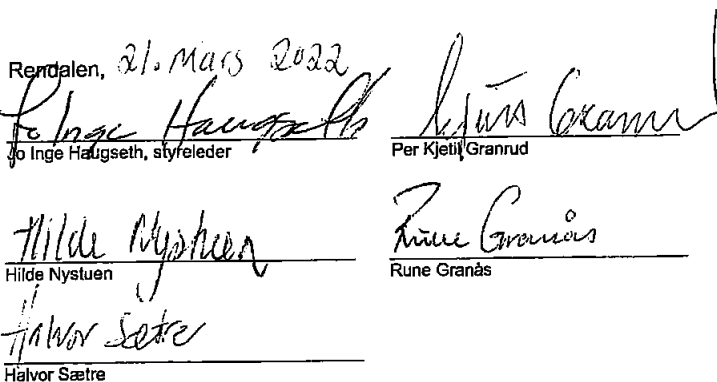 Rendalen, 21. Mars 2022
Jo Inge Haugseth
Jo Inge Haugseth, styreleder
Kjetil Granrud
Per Kjetil Granrud
Hilde Nystuen
Hilde Nystuen
Rune Granås
Rune Granås
Halvor Sætre
Halvor Sætre